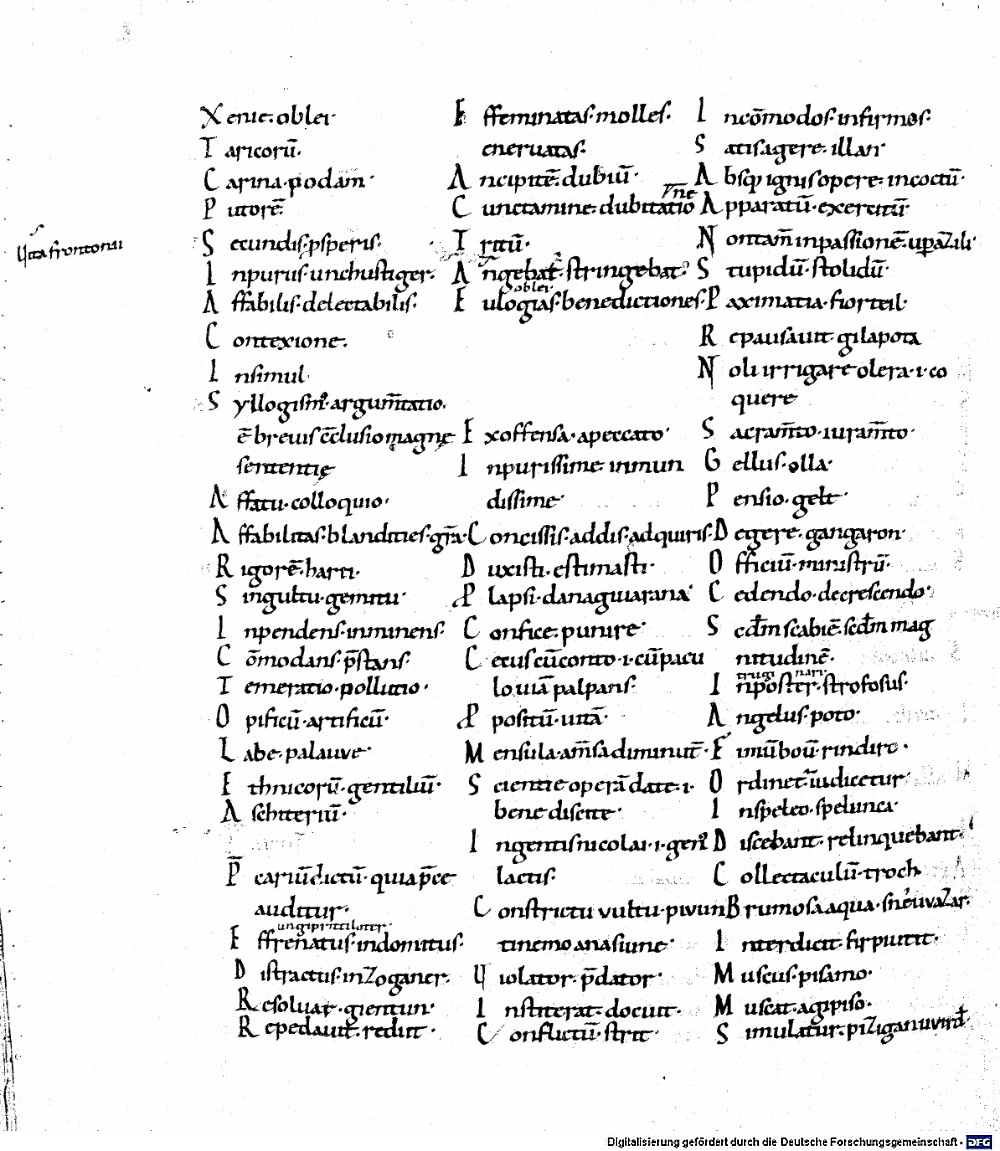 Vita frontonis
Xenię. oblei·
Taricorū.
Carina. podam·
Putorē.
Secundis. ꝓsperis.
Inpurus. unchustiger.
Affabilis. delectabilis.
Contexione.
Insimul.
Syllogism'. argum̄tatio.
ē breuis c̄clusio magnę
sententię
Affatu. colloquio.
Affabilitas. blandities. gr̄a.
Rigorē. harti.
Singultu. gemitu.
Inpendens. inminens.
Cōmodans. p̄stans.
Temeratio. pollutio.
Opificū. artificū.
Labe. palauve.
Ethnicorū. gentiliū.
Aschiteriū.
P̄cariū dictū. quia p̄ce
auditur.
ungipritiloter
Effrenatus. indomitus.
Distractus. inzoganer.
Resoluar. gientun.
Repedauit. rediit.
Effeminatas. molles.
eneruatas.
Ancipitē. dubiū.
Cunctamine. dubitatio
Tritū.
Angebat. stringebat.
oblei
Eulogias. benedictiones.
Ex offensa. a peccato.
Inpurissime. inmun
dissime.
Concissis. addis. adquiris.
Duxisti. estimasti.
Plapsi. danaguiarana
Confice. punire.
Cecus cū conto .i. cū pacu
lo uiā palpans.
Positū. uitā.
Mensula. a m̄sa diminut̄.
Scientie operā date .i.
bene discite.
Ingentis nicolai .i. gen̄
lactis.
Constrictu vultu. pivun
tinemo anasiune.
Uiolator. p̄dator.
Institerat. docuit.
Conflictū. strit.
Incōmodos. infirmos.
Satisagere. illan
Absq; ignis opere. incoctū.
Apparatū. exercitū
Non tam̄ in passionē. upazili
Stupidū. stolidū.
Paximatia. fiorteil.
Repausauit. gilapota
Noli irrigare olera .i. co
quere
Sacram̄to. iuram̄to.
Gellus. olla.
Pensio. gelt.
Degere. gangaron.
Officiū. ministrū.
Cedendo. decrescendo.
Scdm̄ scabiē. scdm̄ mag
nitudinē.
trugi nari
Inposter. strofosus.
Angelus. poto.
Fimū boū. rindire.
Ordinet̄. iudicetur.
In speleo. spelunca.
Discebant. relinquebant.
Collectaculū. troch
Brumosa aqua. sneuvazar.
Interdicit. firpiutit.
Muscus. pisamo.
Muscat. agipiso.
Simulatur. piziganuvird